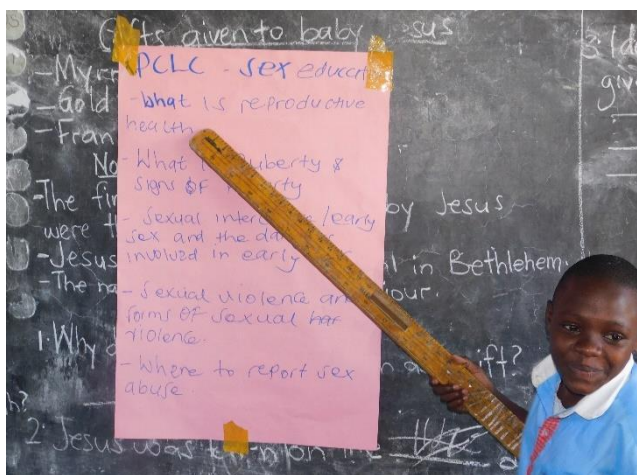 Gifts given to baby Jesus
-Myrr
-Gold
-Fran
No
-The fir
by Jesus
were th
-Jesus
l in Bethlehem.
-The na
iour.
1. Why
ift?
2 Jesus was
on the
3. Id
giv
PCLC - Sex educat
- What is reproductive
health
- What Puberty &
signs of
- Sexual inter /early
sex and the da
involved in early
- Sexual violence an
forms of sexual
violence.
- Where to report sex
abuse